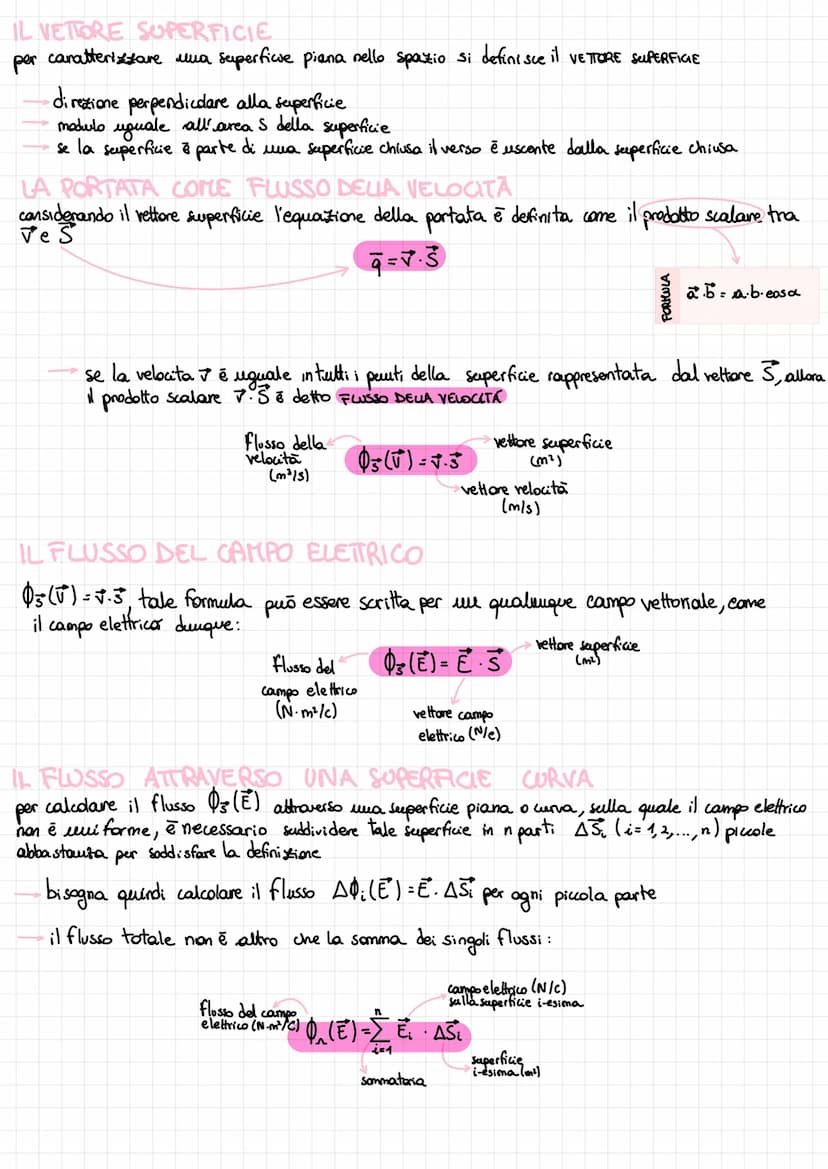 IL VETTORE SUPERFICIE
per caratterizzare una superficie piana nello spazio si definisce il VETTORE SUPERFICIE
→ direzione perpendicolare alla superficie
→ modulo uguale all'area S della superficie
→ se la superficie è parte di una superficie chiusa il verso è uscente dalla superficie chiusa
LA PORTATA COME FLUSSO DELLA VELOCITÀ
considerando il vettore superficie l'equazione della portata è definita come il prodotto scalare tra
v⃗ e S⃗
q̄ = v⃗ · S⃗
FORMULA
a⃗ · b⃗ = a · b · cos α
→ se la velocità v⃗ è uguale in tutti i punti della superficie rappresentata dal vettore S⃗, allora
il prodotto scalare v⃗ · S⃗ è detto FLUSSO DELLA VELOCITÀ
flusso della
velocità
(m³/s)
Φ_S⃗(v⃗) = v⃗ · S⃗
vettore superficie
(m²)
vettore velocità
(m/s)
IL FLUSSO DEL CAMPO ELETTRICO
Φ_S⃗(v⃗) = v⃗ · S⃗, tale formula può essere scritta per un qualunque campo vettoriale, come
il campo elettrico dunque:
flusso del
campo elettrico
(N·m²/C)
Φ_S⃗(E⃗) = E⃗ · S⃗
vettore superficie
(m²)
vettore campo
elettrico (N/C)
IL FLUSSO ATTRAVERSO UNA SUPERFICIE CURVA
per calcolare il flusso Φ_S⃗(E⃗) attraverso una superficie piana o curva, sulla quale il campo elettrico
non è uniforme, è necessario suddividere tale superficie in n parti ΔS⃗i (i = 1, 2, ..., n) piccole
abbastanza per soddisfare la definizione
→ bisogna quindi calcolare il flusso ΔΦi(E⃗) = E⃗ · ΔS⃗i per ogni piccola parte
→ il flusso totale non è altro che la somma dei singoli flussi:
flusso del campo
elettrico (N·m²/C)
Φ_n(E⃗) = Σ_{i=1}^{n} E⃗i · ΔS⃗i
campo elettrico (N/C)
sulla superficie i-esima
superficie
i-esima (m²)
sommatoria